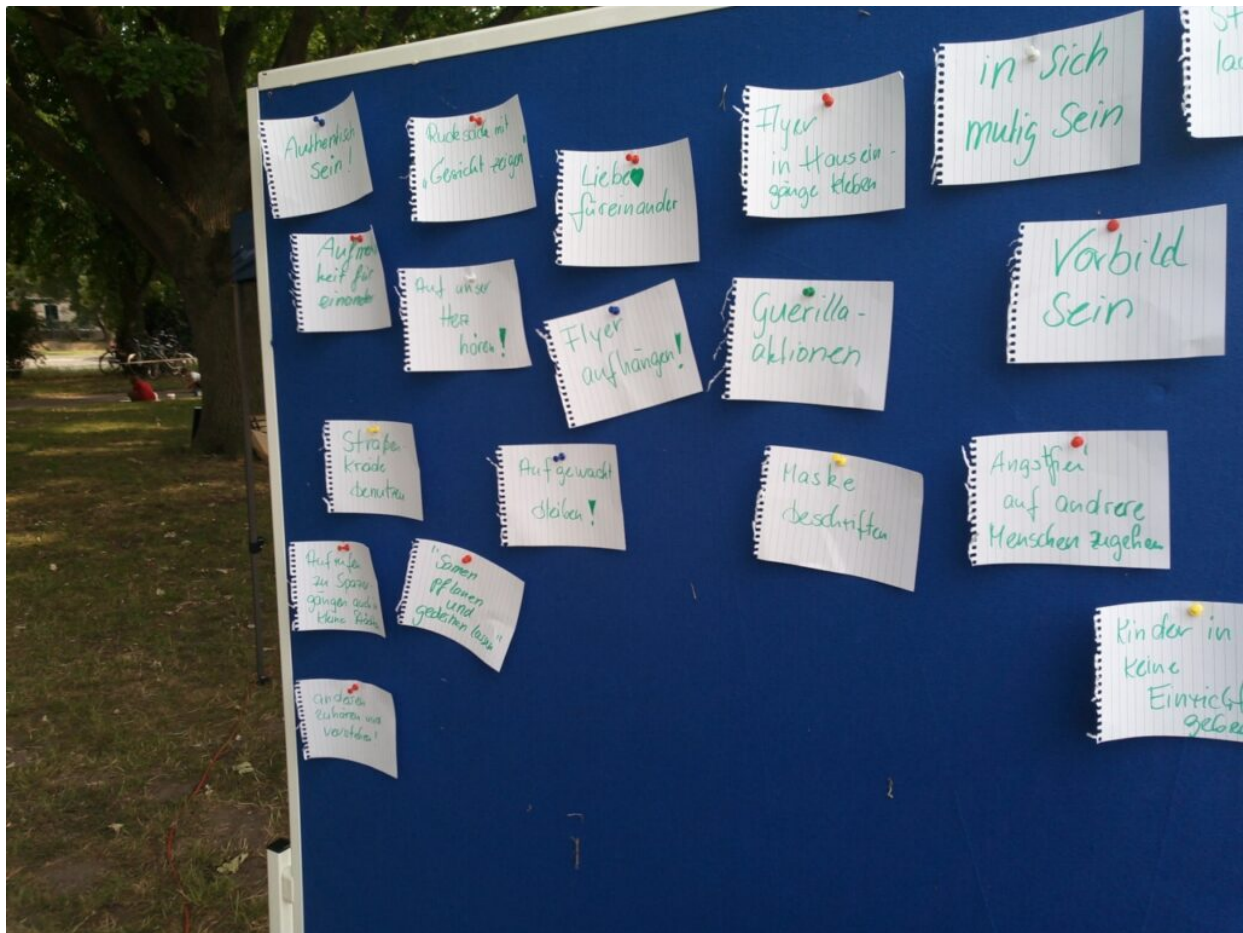 Authentisch
sein!
Rucksäcke mit
„Gesicht zeigen"
Liebe
füreinander
Flyer
in Hausein-
gänge kleben
in sich
mutig sein
St
lac
Aufmer
keit für
einander
Auf unser
Herz
hören!
Flyer
aufhängen!
Guerilla-
aktionen
Vorbild
sein
Straßen
kreide
benutzen
Aufgewacht
bleiben!
Maske
beschriften
Angstfrei
auf andrere
Menschen zugehen
Aufrufen
zu Spazier-
gängen auch in
kleine Städte
"Samen
pflanen
und
gedeihen lassen"
anderen
zuhören und
verstehen!
Kinder in
keine
Einricht
geben